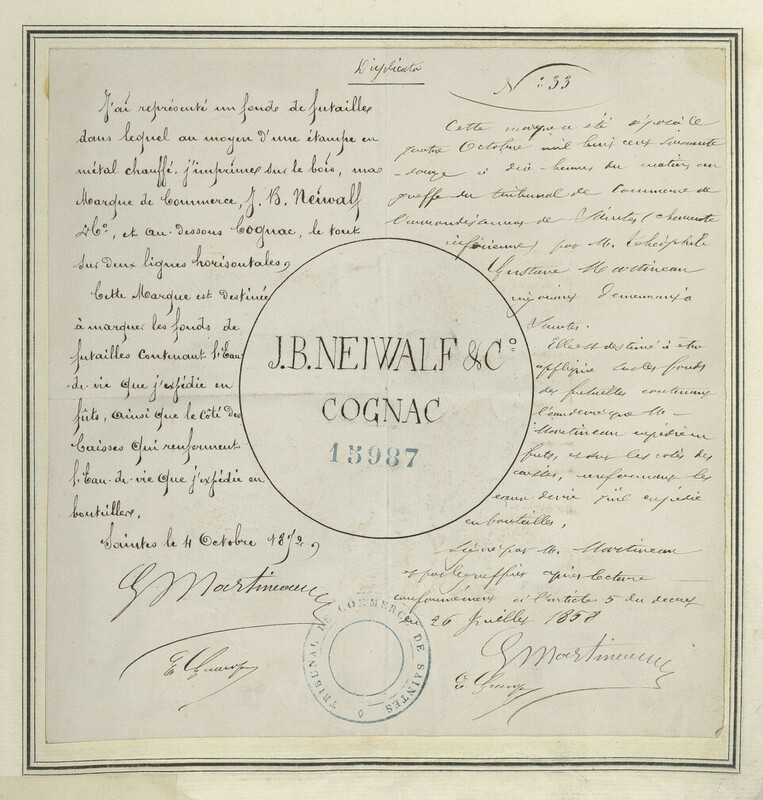 Duplicata
J'ai représenté un fonds de futailles
dans lequel au moyen d'une étampe en
métal chauffé, j'imprime sur le bois, ma
Marque de Commerce, J. B. Neiwalf
& Cº, et au-dessous Cognac, le tout
sur deux lignes horisontales,
Cette Marque est destinée
à marquer les fonds de
futailles contenant l'Eau-
de-vie que j'expédie en
fûts, ainsi que le Côté des
Caisses qui renferment
l'Eau-de-vie que j'expédie en
bouteilles.
Saintes le 4 Octobre 1872,
G Martineau
J.B. NEIWALF & Cº
COGNAC
15987
Nº 33
Cette marque a été déposée le
quatre Octobre mil huit cent soixante
-douze à dix heures du matin au
greffe du tribunal de Commerce de
l'arrondissement de Saintes (Charente
inférieure) par M. Théophile
Gustave Martineau
demeurant à
Saintes.
Elle est destinée à être
appliquée sur les fonds
des futailles contenant
l'eau de vie que M.
Martineau expédie en
futs, et sur les côtés des
caisses, renfermant les
eaux de vie qu'il expédie
en bouteilles,
Signé par M. Martineau
et par le greffier après lecture
conformément à l'article 5 du décret
du 26 Juillet 1858
G Martineau
TRIBUNAL DE COMMERCE DE SAINTES